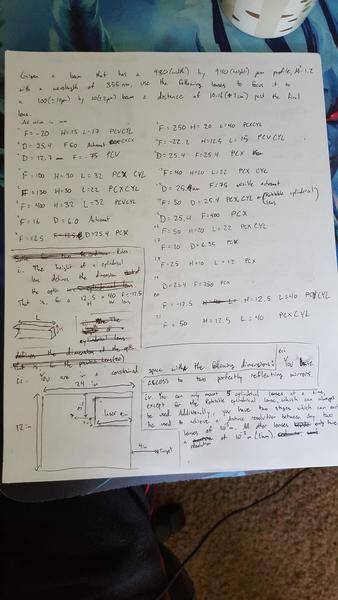 Given a beam that has a 980 (width) by 980 (height) µm profile, M²=1.2
with a wavelength of 355 nm, use the following lenses to focus it to
a 100 (±1µm) by 10 (±2µm) beam a distance of 10.16 (±1cm) past the final
lens.
All values in mm
F = -20 H=15 L=17 PCVCYL
D = 25.4 F 60 Achromat
D = 12.7 F = -75 PCV
F = 100 H=30 L=32 PCX CYL
F = 130 H=30 L=22 PCX CYL
F = 400 H=32 L=32 PCVCYL
F = 16 D = 6.0 Achromat
F = 12.5 D=25.4 PCX
F = 250 H=20 L=40 PCX CYL
F = -22.2 H=12.5 L=15 PCVCYL
D = 25.4 F=25.4 PCX
F = 40 H=20 L=22 PCX CYL
D = 25.4 F=75 Achromat
F = 50 D=25.4 PCX CYL (Rotatable cylindrical) lens
D = 25.4 F=400 PCX
F = 50 H=20 L=22 PCX CYL
F = 10 D=6.35 PCX
F = 25 H=10 L=12 PCX
D = 25.4 F=250 PCX
F = -12.5 H=12.5 L=40 CYL
F = 50 H=12.5 L=40 PCXCYL
Rules
i. The height of a cylindrical
lens defines the dimension of
the optic
That is, for a 12.5 x 40 F=-12.5
H L
L
H
ii. You are in a constrained
space with the following dimensions:
24 in
12 in
Laser
4 in
Target
iii. You have
access to two perfectly reflecting mirrors.
iv. You can only mount 5 cylindrical lenses at a time,
except for the Rotatable cylindrical lens, which can always
be used. Additionally, you have two stages which can
be used to achieve a distance resolution between any two
lenses of 10⁻⁵ m. All other lenses only have
a resolution of 10⁻³ m (1mm).